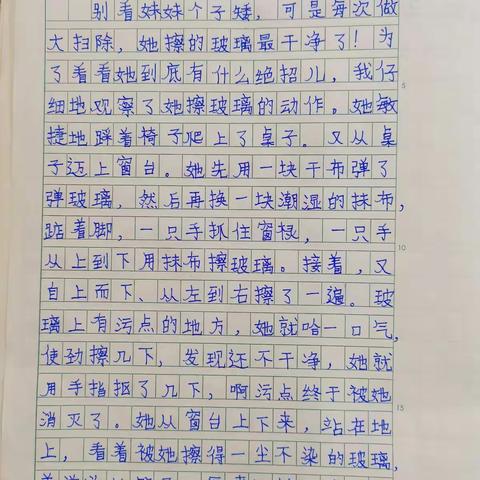 别看妹妹个子矮，可是每次做
大扫除，她擦的玻璃最干净了！为
了看看她到底有什么绝招儿，我仔
细地观察了她擦玻璃的动作。她敏
捷地踩着椅子爬上了桌子。又从桌
子迈上窗台。她先用一块干布弹了
弹玻璃，然后再换一块潮湿的抹布，
踮着脚，一只手抓住窗棂，一只手
从上到下用抹布擦玻璃。接着，又
自上而下、从左到右擦了一遍。玻
璃上有污点的地方，她就哈一口气，
使劲擦几下，发现还不干净，她就
用手指抠了几下，啊污点终于被她
消灭了。她从窗台上下来，站在地
上，看着被她擦得一尘不染的玻璃，
5
10
15